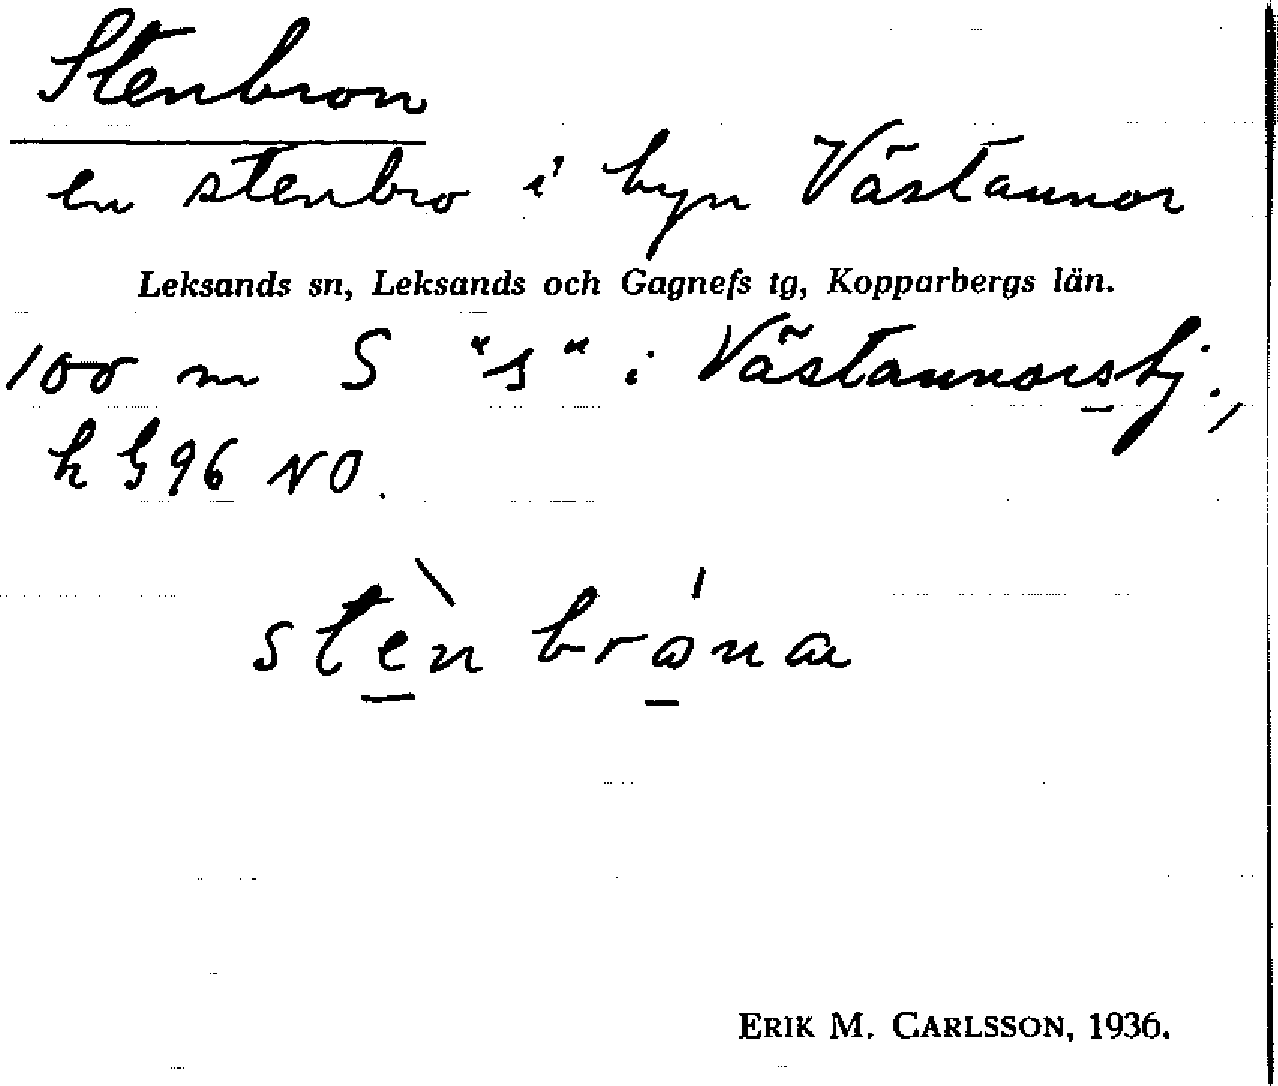 Stenbron
en stenbro i byn Västannor
Leksands sn, Leksands och Gagnefs tg, Kopparbergs län.
100 m S "s" i Västannorsbj.,
k G 96 NO.
stèn brǻna
ERIK M. CARLSSON, 1936.